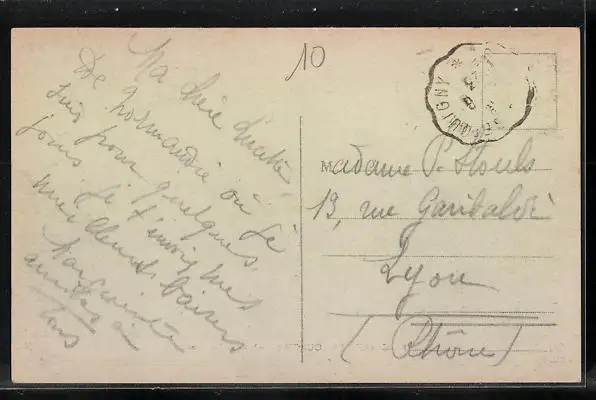 10
Ma chère Lucette,
De Normandie où je
suis pour quelques
jours. Je t'envoie mes
meilleurs baisers
Marguerite
amitiés à
tous
Madame P. Stouls
13, rue Garibaldi
Lyon
(Rhône)